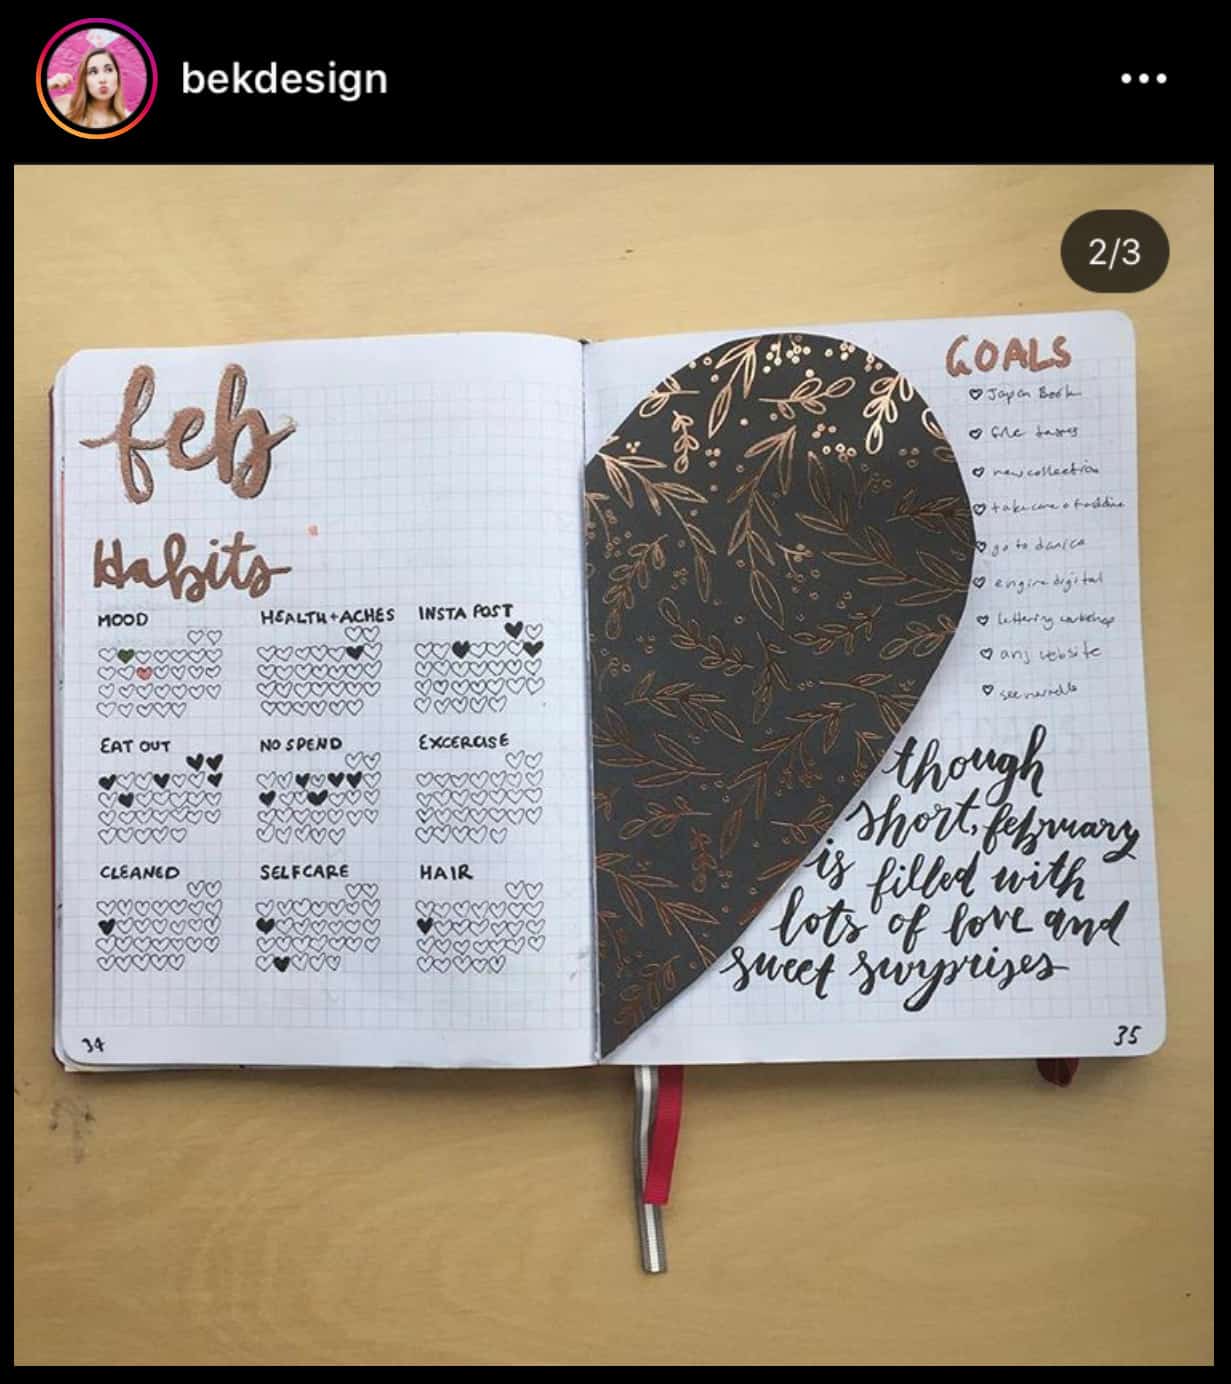 bekdesign
2/3
feb
Habits
MOOD
HEALTH+ACHES
INSTA POST
EAT OUT
NO SPEND
EXCERCISE
CLEANED
SELFCARE
HAIR
34
GOALS
Japan Book
file taxes
new collection
take care o
go to dance
engine digital
lettering workshop
website
see
though
short, february
is filled with
lots of love and
sweet surprises
35